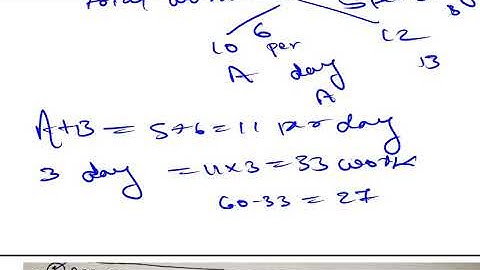 total work
5 per
B
6
per
day
A
10
A
12
B
A+B = 5+6 = 11 per day
3 day = 11x3 = 33 work
60-33 = 27